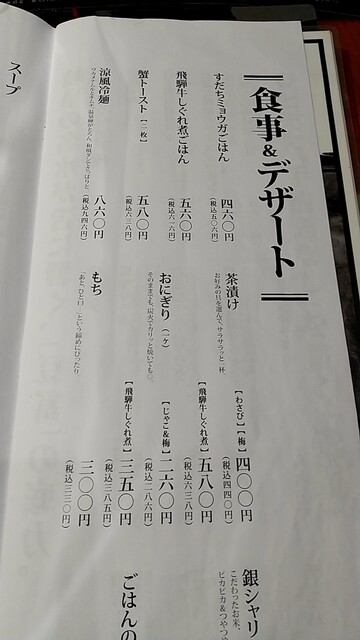 食事&デザート
すだちミョウガごはん
四六〇円
(税込五〇六円)
飛騨牛しぐれ煮ごはん
五六〇円
(税込六一六円)
蟹トースト【二枚】
五八〇円
(税込六三八円)
涼風冷麺
八六〇円
(税込九四六円)
茶漬け
お好みの具を選んで、サラサラッと一杯。
【わさび】【梅】
四〇〇円
(税込四四〇円)
【飛騨牛しぐれ煮】
五八〇円
(税込六三八円)
おにぎり(一ケ)
そのままでも、炭火でカリッと焼いても◯。
【じゃこ&梅】
二六〇円
(税込二八六円)
【飛騨牛しぐれ煮】
三五〇円
(税込三八五円)
もち
「あと、ひと口…」という締めにぴったり
三〇〇円
(税込三三〇円)
銀シャリ
こだわったお米、
ピカピカ&つやつや
ごはんの
スープ